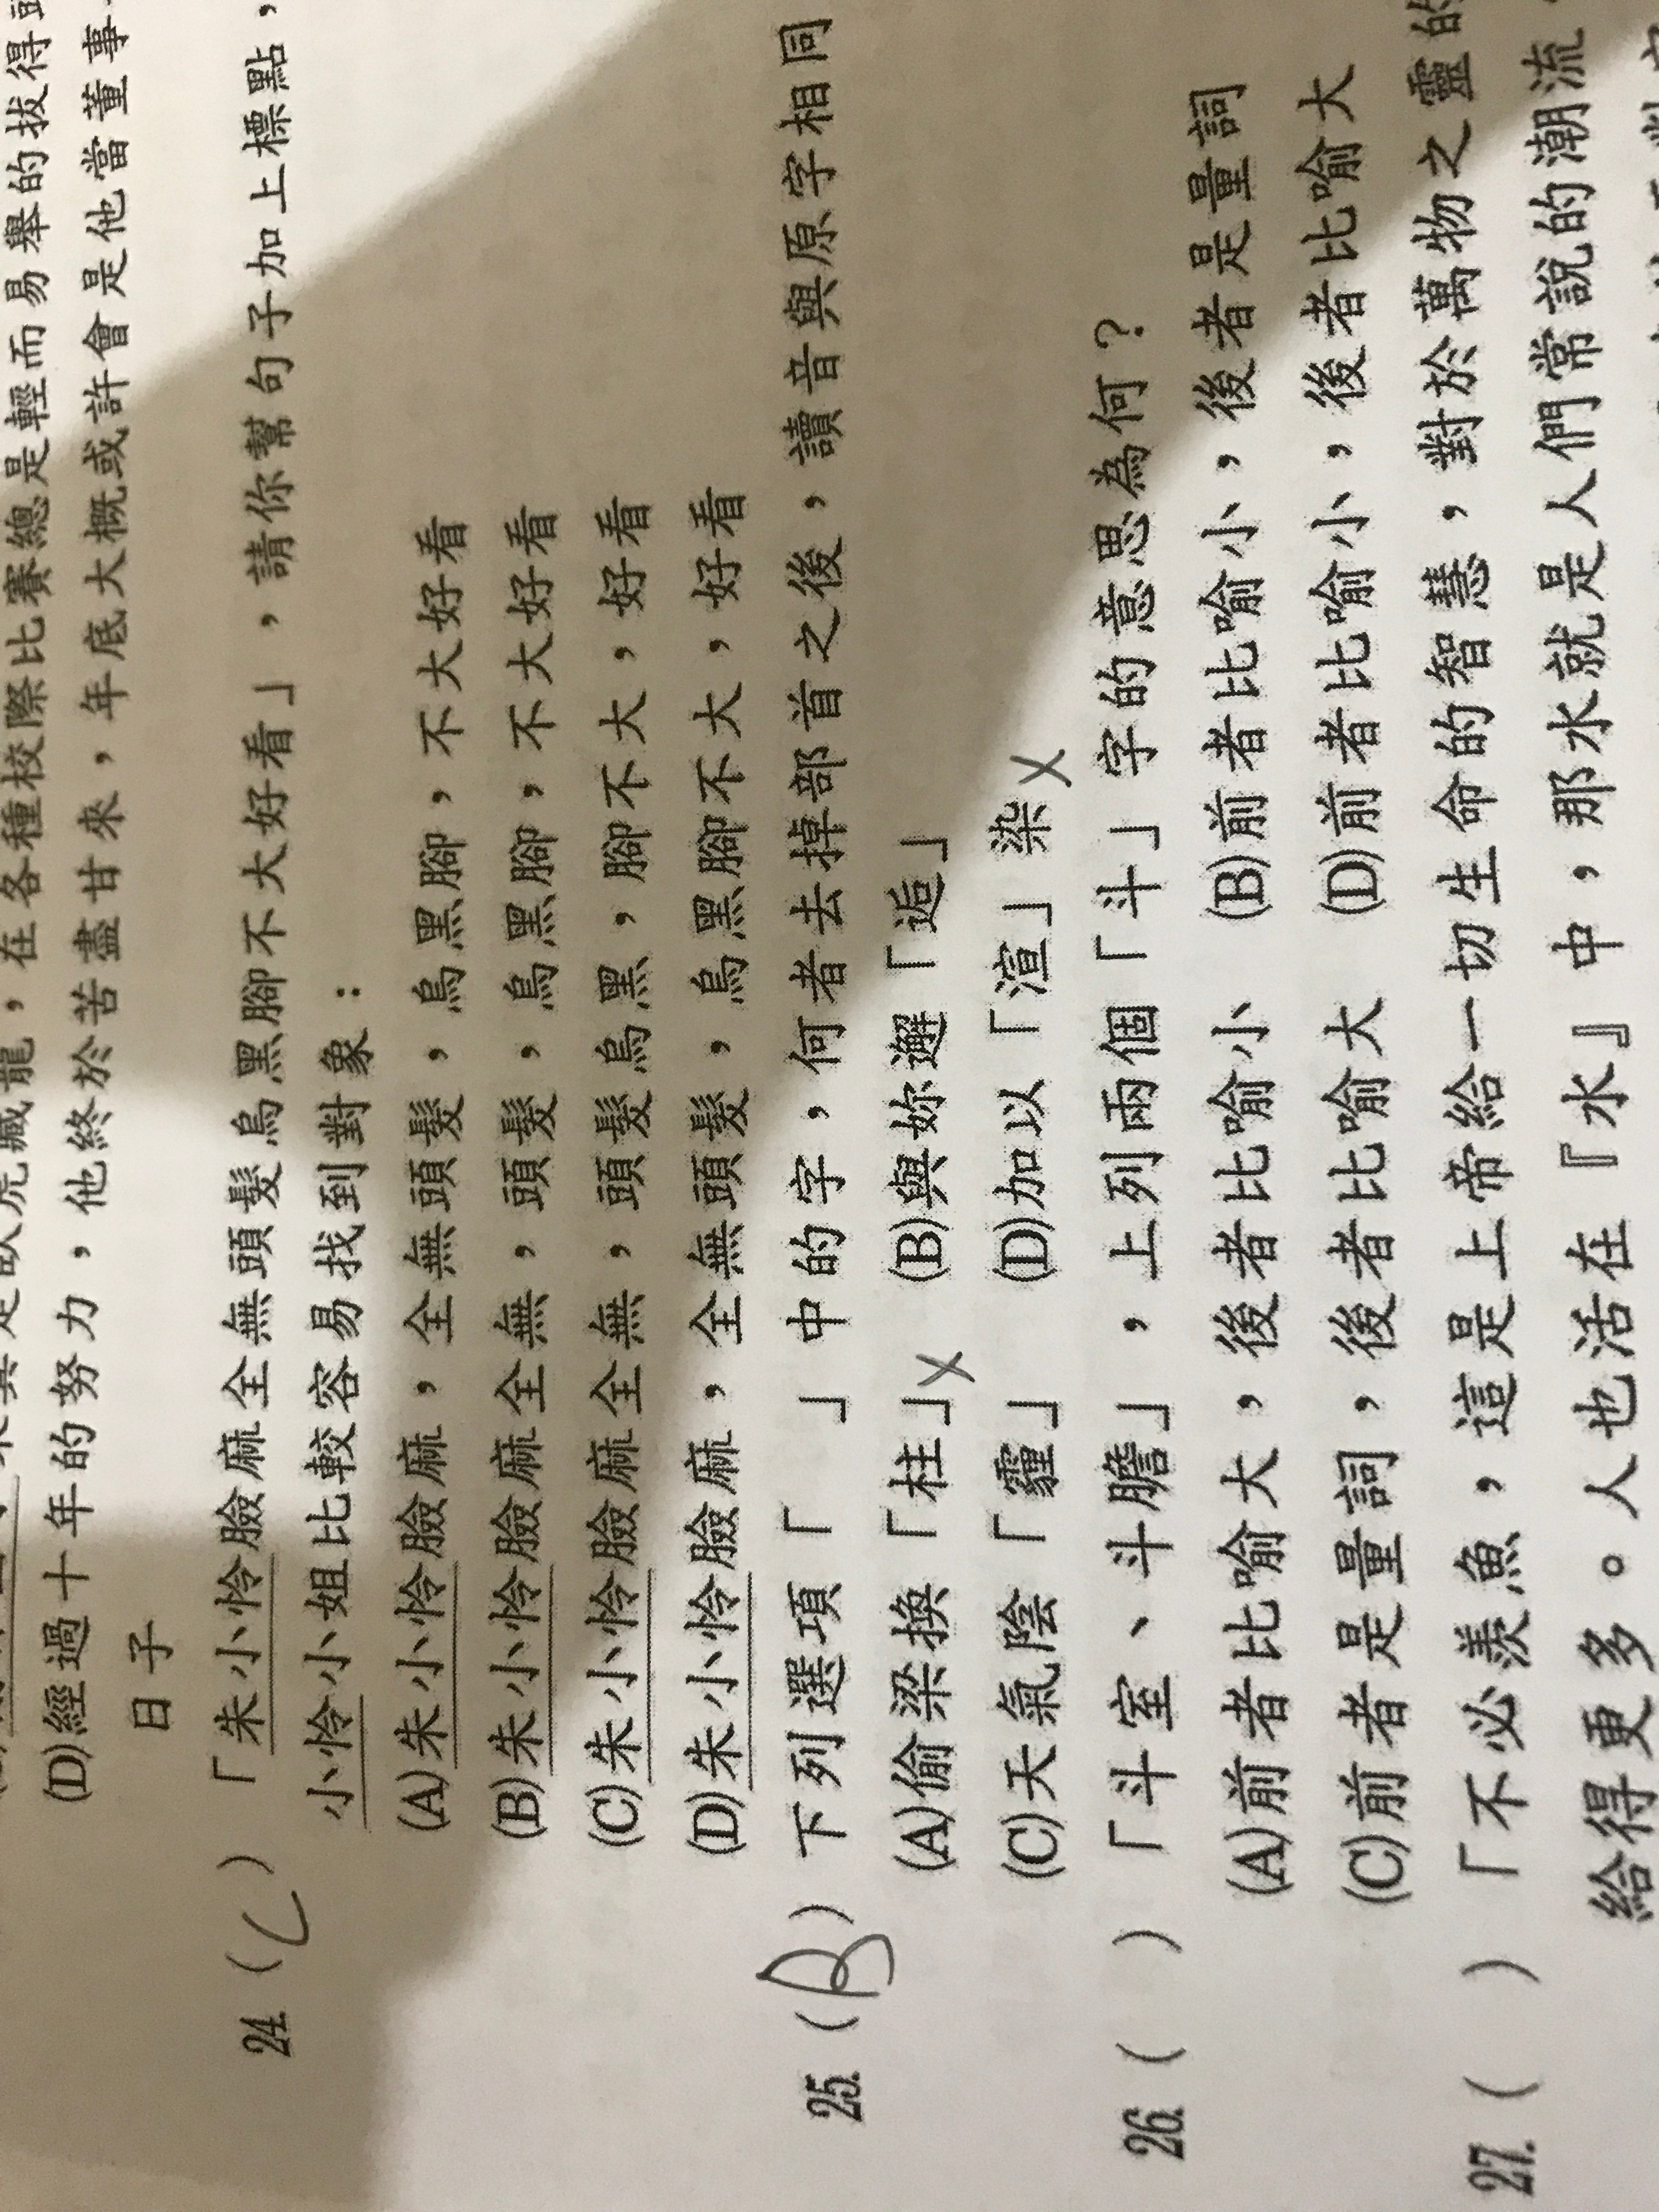 在各種校際比賽總是輕而易舉的拔得
(D)經過十年的努力，他終於苦盡甘來，年底大概或許會是他當董事
日子
24. (C)「朱小怜臉麻全無頭髮烏黑腳不大好看」，請你幫句子加上標點，
小怜小姐比較容易找到對象：
(A)朱小怜臉麻，全無頭髮，烏黑腳，不大好看
(B)朱小怜臉麻全無，頭髮，烏黑腳，不大好看
(C)朱小怜臉麻全無，頭髮烏黑，腳不大，好看
(D)朱小怜臉麻，全無頭髮，烏黑腳不大，好看
25. (B)下列選項「 」中的字，何者去掉部首之後，讀音與原字相同
(A)偷梁換「柱」X (B)與妳邂「逅」
(C)天氣陰「霾」 (D)加以「渲」染X
26. ( )「斗室、斗膽」，上列兩個「斗」字的意思為何？
(A)前者比喻大，後者比喻小 (B)前者比喻小，後者是量詞
(C)前者是量詞，後者比喻大 (D)前者比喻小，後者比喻大
27. ( )「不必羨魚，這是上帝給一切生命的智慧，對於萬物之靈的
給得更多。人也活在『水』中，那水就是人們常說的潮流